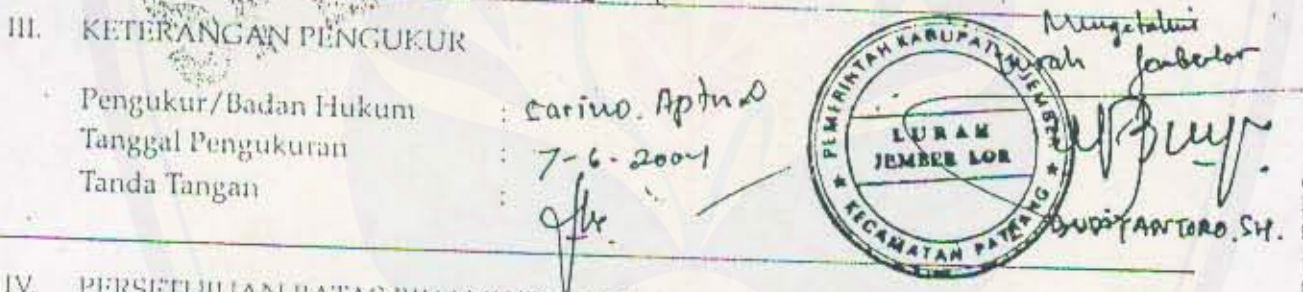 III. KETERANGAN PENGUKUR
Pengukur/Badan Hukum : Carino. Aptnㅤ
Tanggal Pengukuran : 7-6-2004
Tanda Tangan :
Mengetahui
Lurah Jemberlor
PEMERINTAH KABUPATEN JEMBER
LURAH
JEMBER LOR
KECAMATAN PATRANG
BUDIYANTORO, SH.
IV. PERSETUJUAN BATAS BIDANG